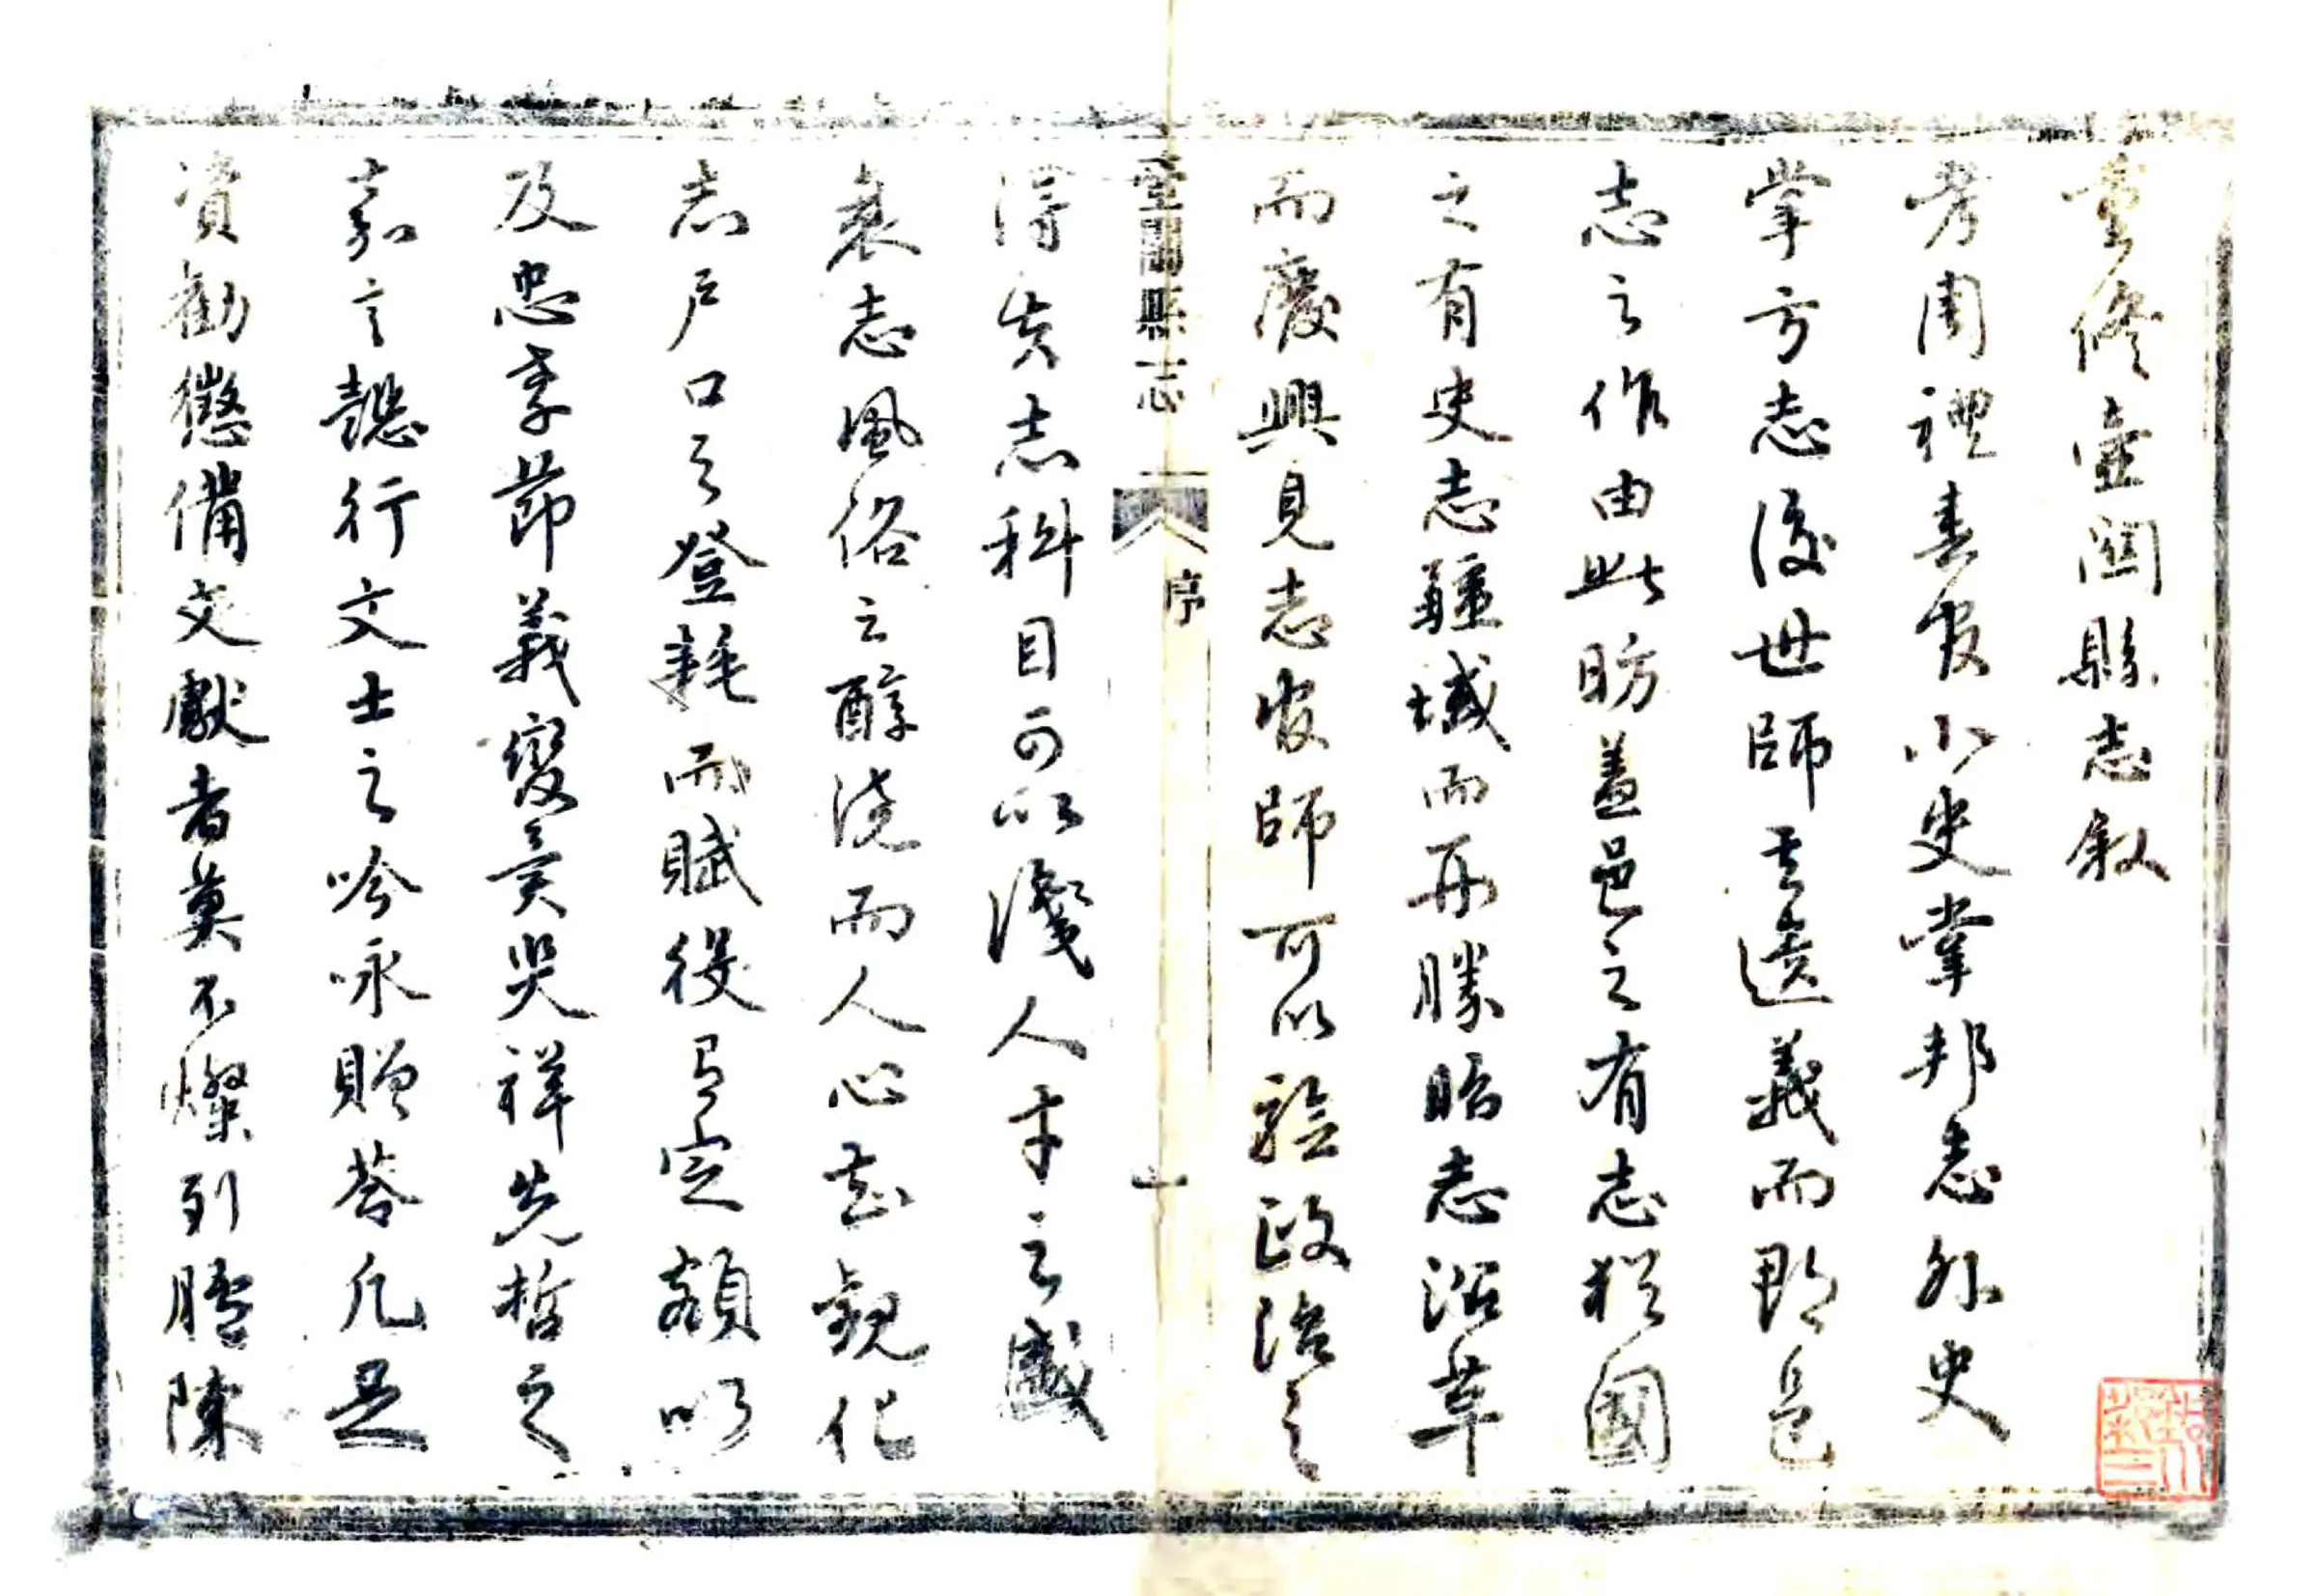 重修壺關縣志敘
考周禮春官小史掌邦志外史
掌方志後世師其遺義而郡邑
志之作由此昉蓋邑之有志猶國
之有史志疆域而形勝昭志沿革
而廢興見志官師可以驗政治之
壺關縣志
序
一
得失志科目可以識人才之盛
衰志風俗之醇澆而人心知觀化
志戶口之登耗而賦役有定額以
及忠孝節義變異災祥先哲之
嘉言懿行文士之吟咏贈答凡足
資勸懲備文獻者莫不燦列臚陳